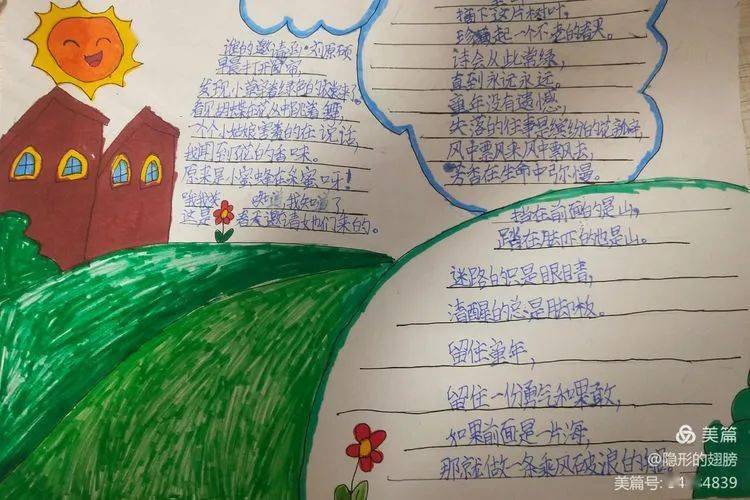 谁的邀请函 刘原硕
早晨打开窗帘,
发现小草着绿色的跑来了
看见蝴蝶在花丛中跳着舞,
个个小姑娘害羞的在说话,
我闻到了花的香味。
原来是小蜜蜂在采蜜呀!
哦我知道我知道了
这是春天邀请她们来的。
摘下这片树叶,
珍藏起一个不老的结果。
诗会从此常绿,
直到永远永远。
童年没有遗憾,
失落的往事是缤纷的花瓣,
风中票风来风中票风去,
芳香在生命中弥慢。
挡在前面的是山,
踏在脚下的也是山。
迷路的只是眼睛,
清醒的总是脚板。
留住童年,
留住一份勇气和果敢,
如果前面是一片海,
那就做一条乘风破浪的船。
美篇
@隐形的翅膀
美篇号: 4839